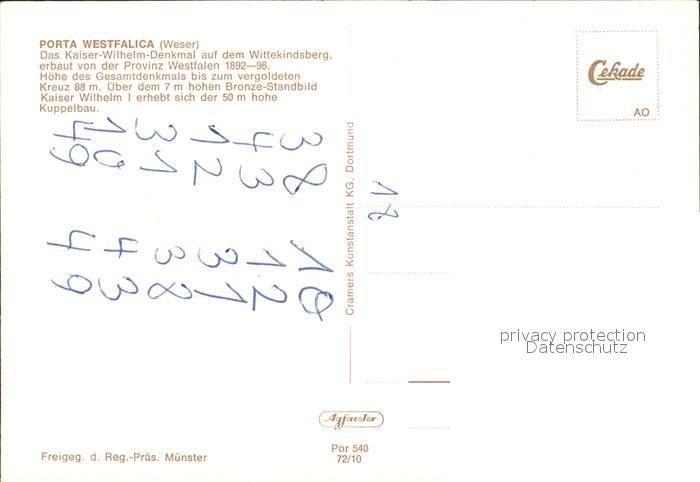 PORTA WESTFALICA (Weser)
Das Kaiser-Wilhelm-Denkmal auf dem Wittekindsberg,
erbaut von der Provinz Westfalen 1892—96.
Höhe des Gesamtdenkmals bis zum vergoldeten
Kreuz 88 m. Über dem 7 m hohen Bronze-Standbild
Kaiser Wilhelm I erhebt sich der 50 m hohe
Kuppelbau.
Cekade
AO
Cramers Kunstanstalt KG. Dortmund
18
privacy protection
Datenschutz
Agfacolor
Freigeg. d. Reg.-Präs. Münster
Por 540
72/10